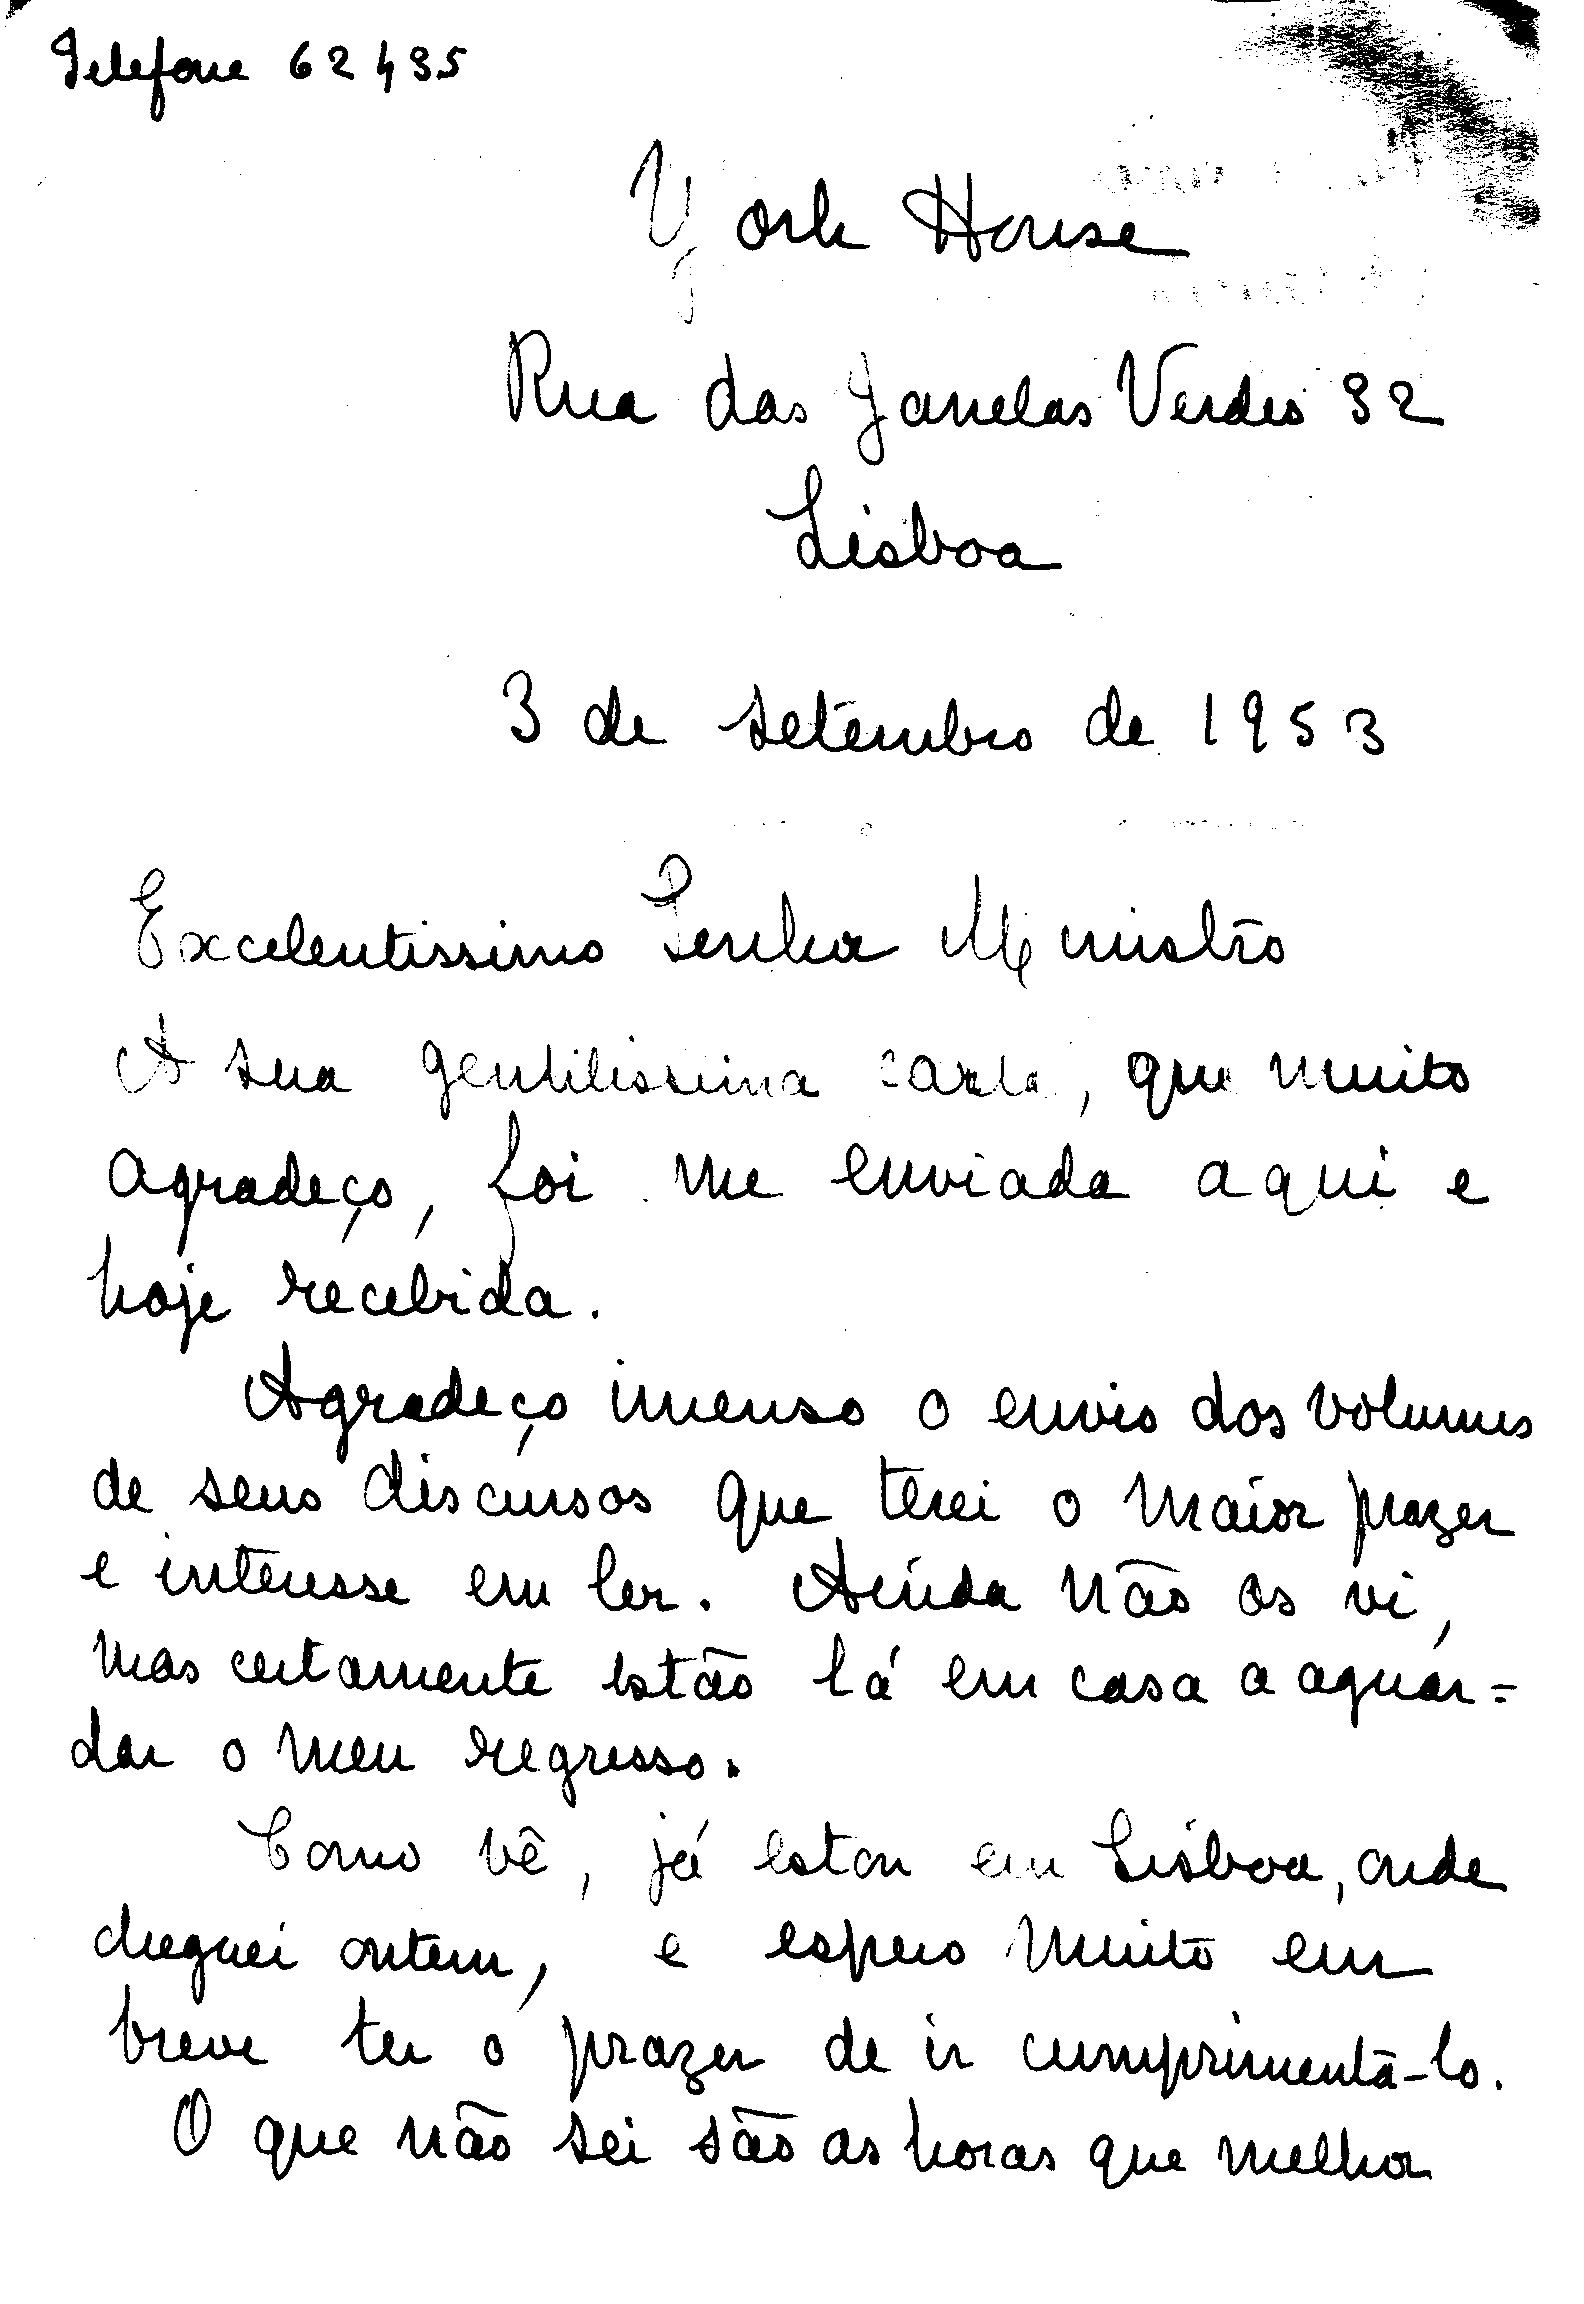 Telefone 62435
York House
Rua das Janelas Verdes 32
Lisboa
3 de setembro de 1953
Excelentissimo Senhor Ministro
A sua gentilissima carta, que muito
agradeço, foi me enviada aqui e
hoje recebida.
Agradeço imenso o envio dos volumes
de seus discursos que terei o maior prazer
e interesse em ler. Ainda não os vi,
mas certamente estão lá em casa a aguar=
dar o meu regresso.
Como vê, já estou em Lisboa, onde
cheguei ontem, e espero muito em
breve ter o prazer de ir cumprimentá-lo.
O que não sei são as horas que melhor